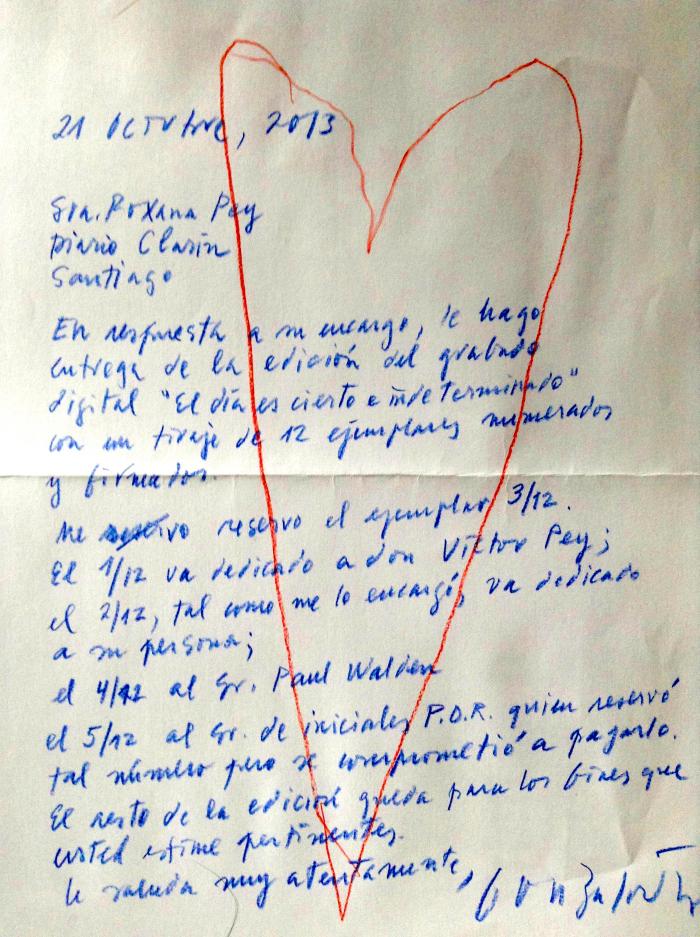 21 Octubre, 2013
Sra. Roxana Pey
Diario Clarín
Santiago
En respuesta a su encargo, le hago
entrega de la edición del grabado
digital "El día es cierto e indeterminado"
con un tiraje de 12 ejemplares numerados
y firmados.
Me reservo el ejemplar 3/12.
El 1/12 va dedicado a don Víctor Pey;
el 2/12, tal como me lo encargó, va dedicado
a su persona;
el 4/12 al Sr. Paul Walden
el 5/12 al Sr. de iniciales P.O.R. quien reservó
tal número pero se comprometió a pagarlo.
El resto de la edición queda para los fines que
usted estime pertinentes.
Le saluda muy atentamente,